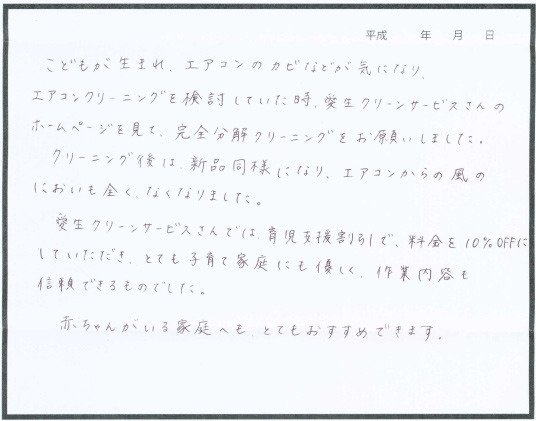 平成　　年　月　日
こどもが生まれ、エアコンのカビなどが気になり、
エアコンクリーニングを検討していた時、愛生クリーンサービスさんの
ホームページを見て、完全分解クリーニングをお願いしました。
クリーニング後は、新品同様になり、エアコンからの風の
においも全く、なくなりました。
愛生クリーンサービスさんでは、育児支援割引で、料金を10%OFFに
していただき、とても子育て家庭にも優しく、作業内容も
信頼できるものでした。
赤ちゃんがいる家庭へも、とてもおすすめできます。